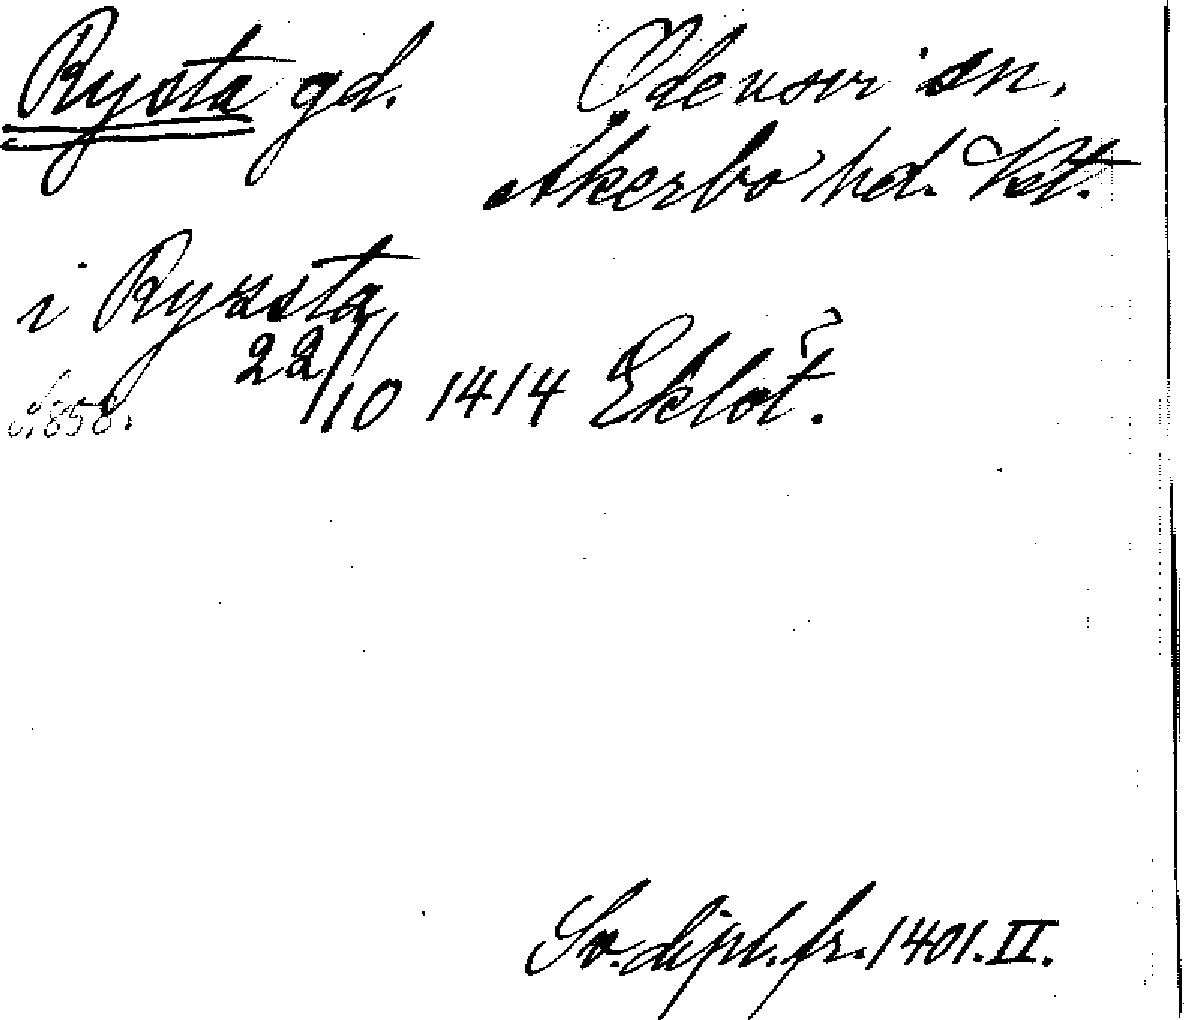 Rysta gd. Odensvi sn.
Åkerbo hd. Vst.
i Ryzsta
22/10 1414 Eklöt.
s. 858.
Sv. dipl. fr. 1401. II.